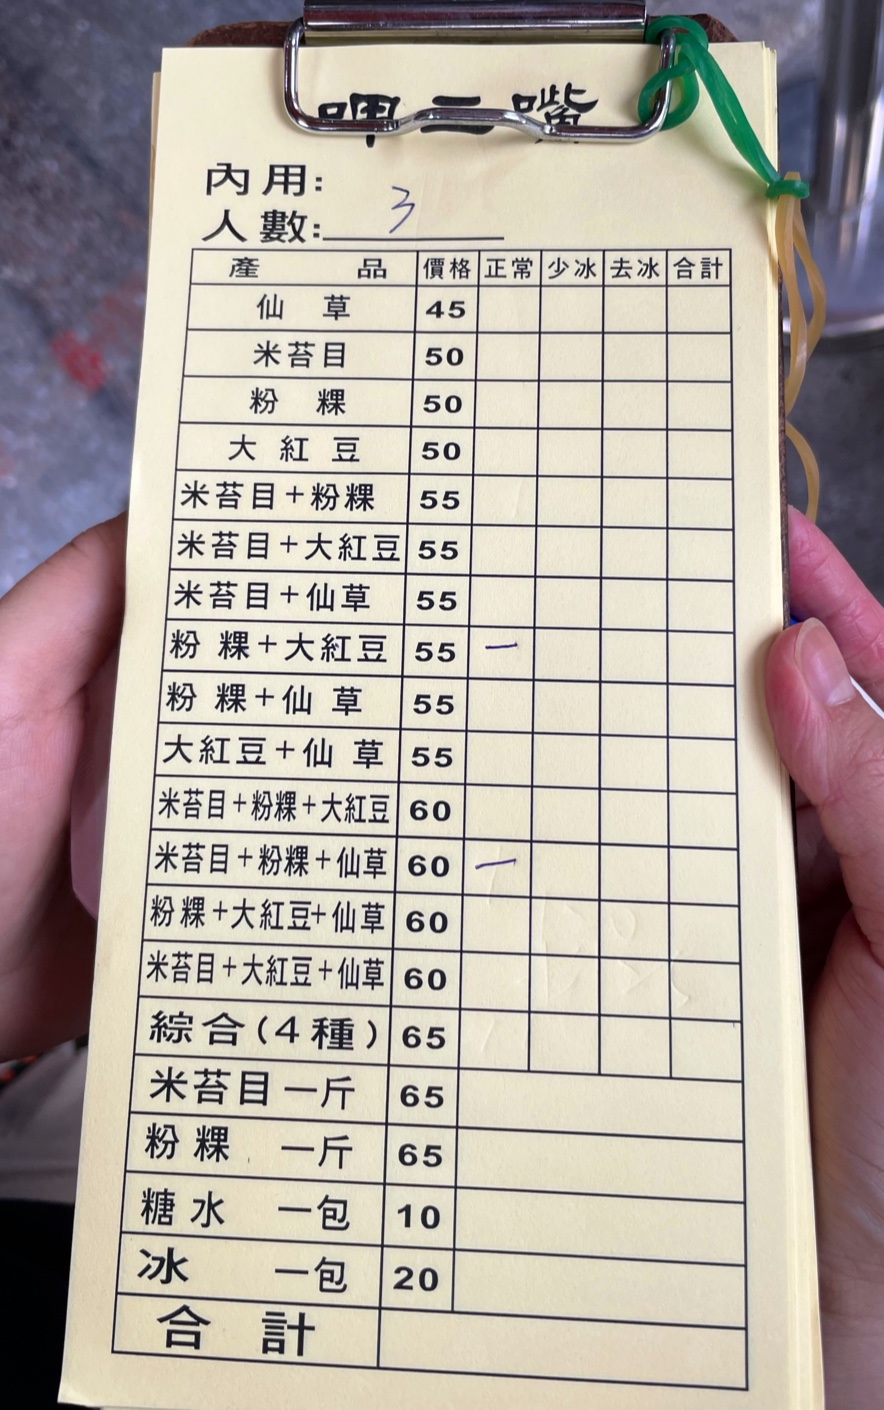 呷二嘴
內用:
人數: 3
產 品 價格 正常 少冰 去冰 合計
仙 草 45
米苔目 50
粉 粿 50
大 紅 豆 50
米苔目+粉粿 55
米苔目+大紅豆 55
米苔目+仙草 55
粉 粿+大紅豆 55 一
粉 粿+仙 草 55
大紅豆+仙 草 55
米苔目+粉粿+大紅豆 60
米苔目+粉粿+仙草 60 一
粉粿+大紅豆+仙草 60
米苔目+大紅豆+仙草 60
綜合(4種) 65
米苔目 一斤 65
粉 粿 一斤 65
糖 水 一包 10
冰 一包 20
合 計